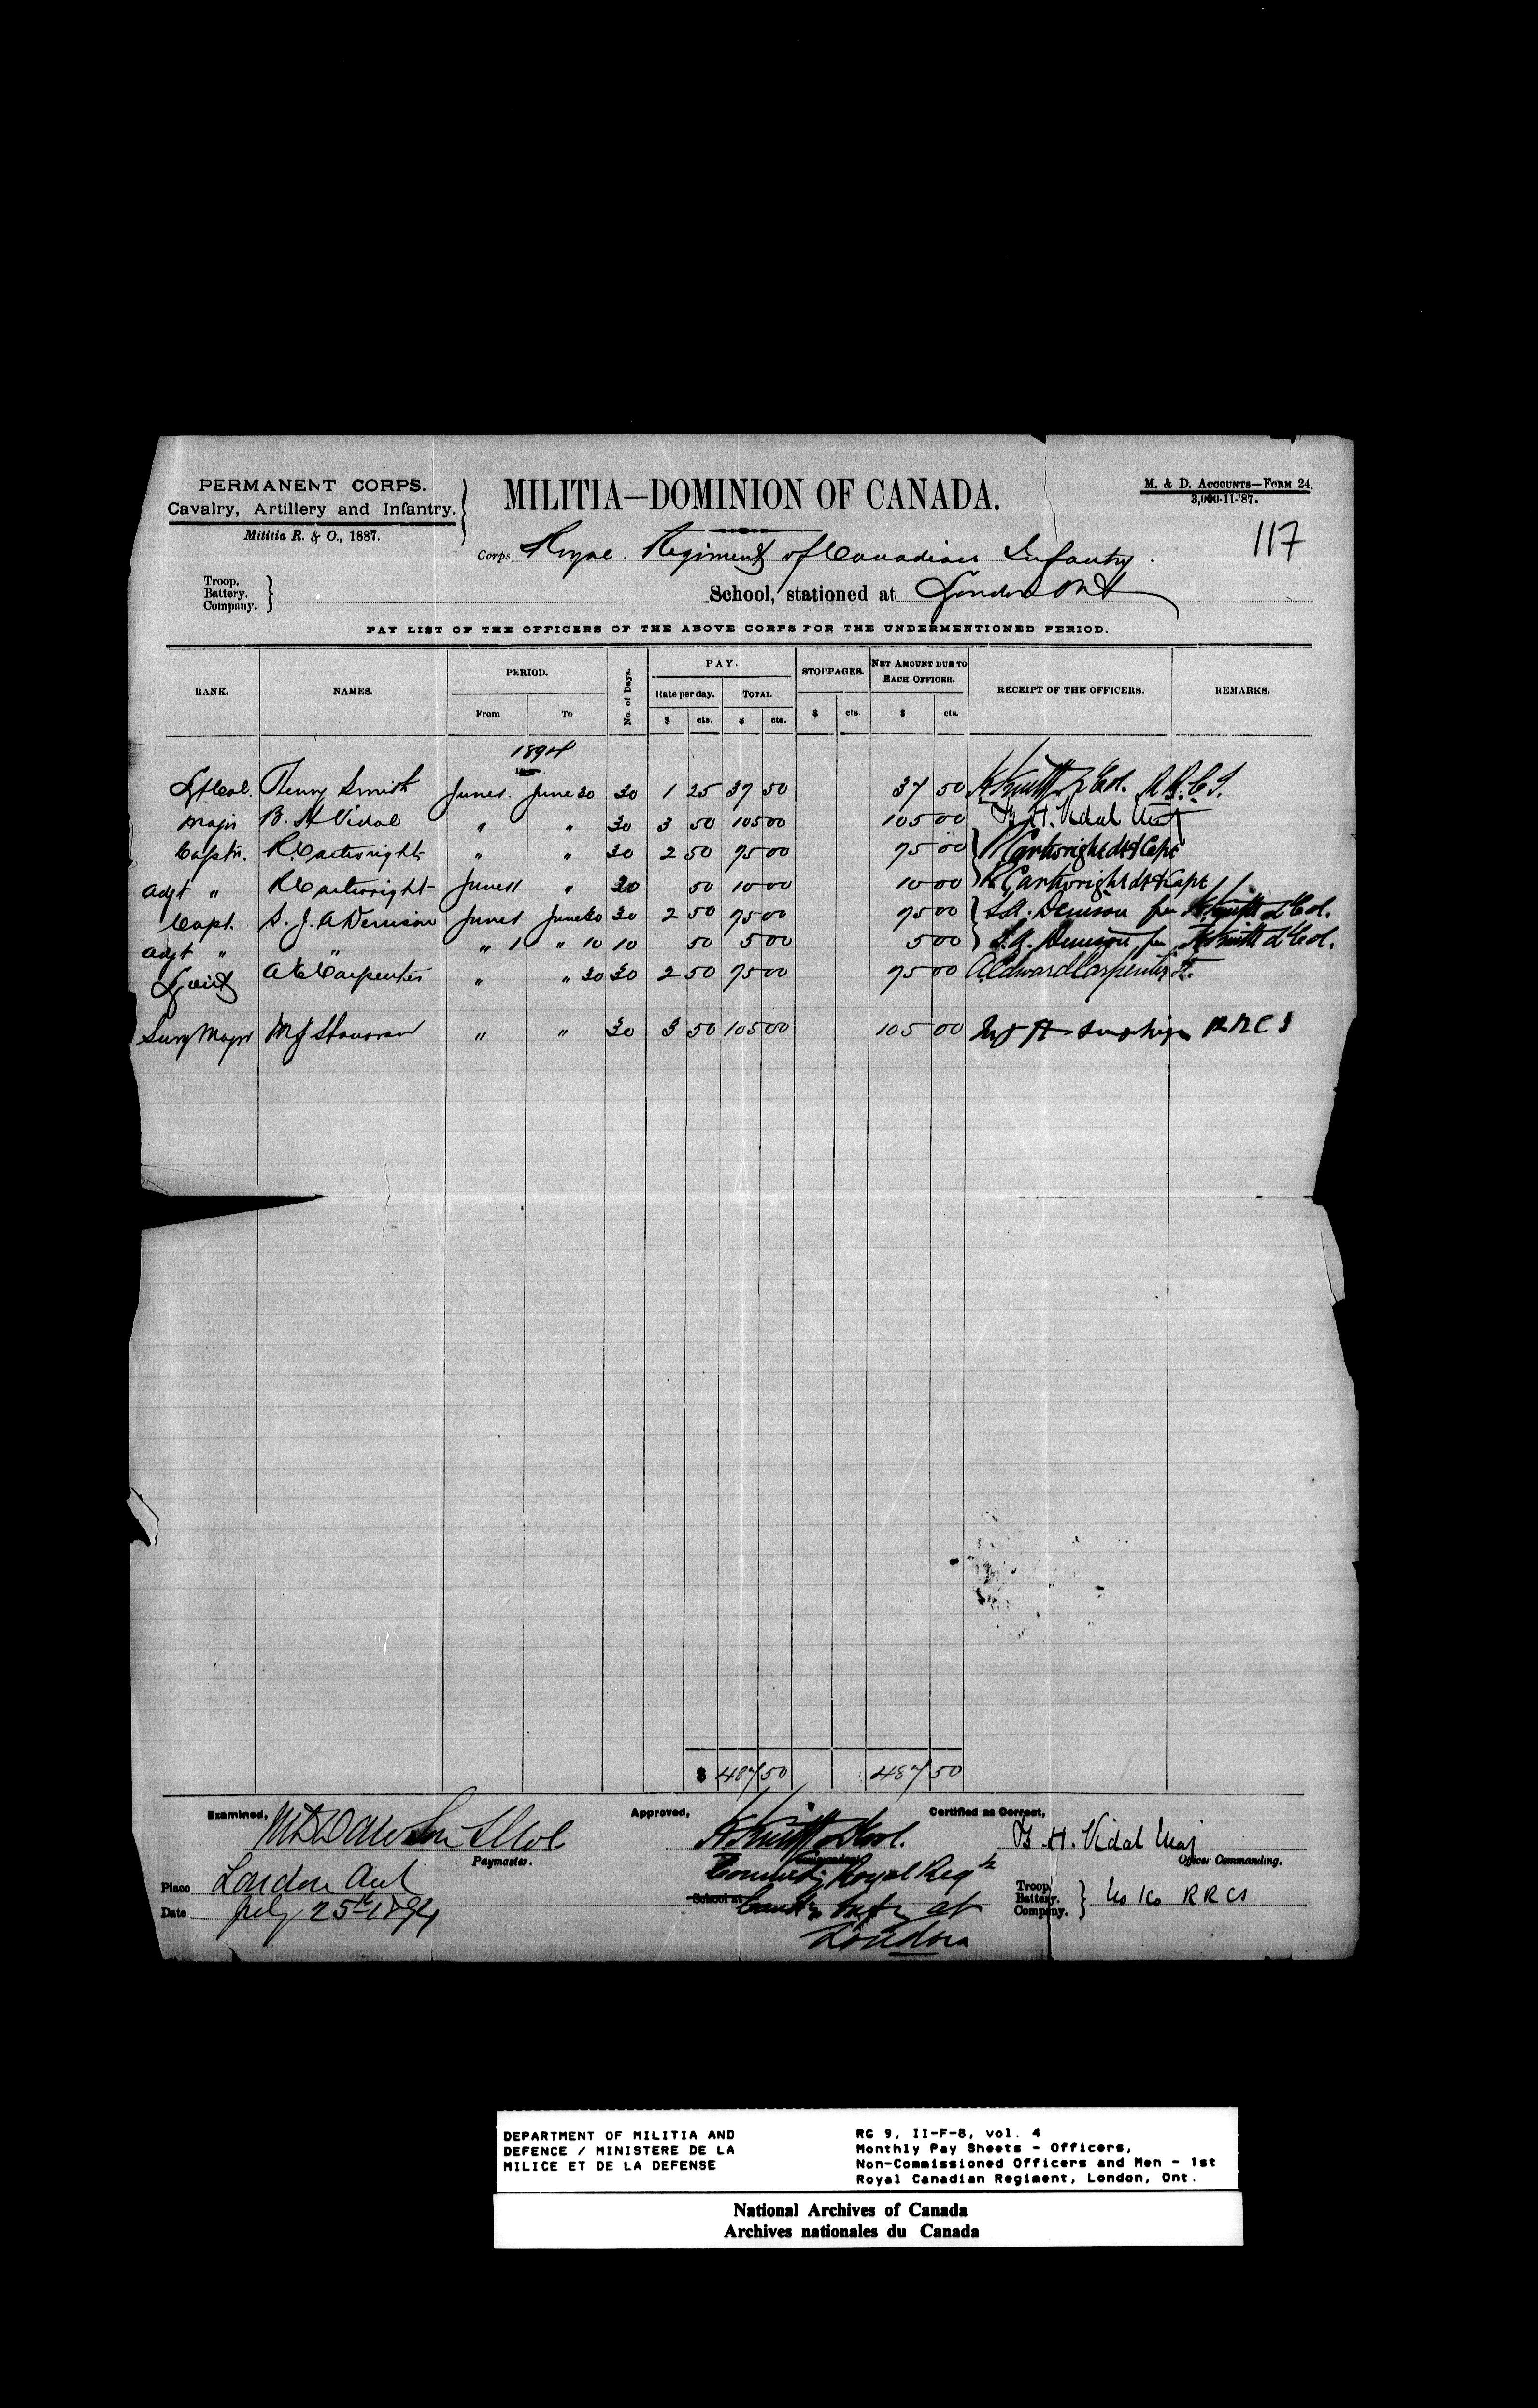 PERMANENT CORPS.
Cavalry, Artillery and Infantry.
Militia R. & O., 1887.
MILITIA—DOMINION OF CANADA.
M. & D. Accounts—Form 24.
3,000-11-'87.
117
Corps Royal Regiment of Canadian Infantry.
Troop.
Battery.
Company.
School, stationed at London Ont
PAY LIST OF THE OFFICERS OF THE ABOVE CORPS FOR THE UNDERMENTIONED PERIOD.
RANK. NAMES. PERIOD. From To No. of Days. PAY. Rate per day. $ cts. TOTAL $ cts. STOPPAGES. $ cts. NET AMOUNT DUE TO EACH OFFICER. $ cts. RECEIPT OF THE OFFICERS. REMARKS.
1894
Lt Col. Henry Smith June 1. June 30 30 1 25 37 50 37 50 H Smith Lt Col. R.R.C.I.
Major B. H Vidal " " 30 3 50 105 00 105 00 B. H. Vidal Maj
Captn. R Cartwright " " 30 2 50 75 00 75 00 R Cartwright Capt
Adjt " R Cartwright June 11 " 20 50 10 00 10 00 R Cartwright Capt
Capt. S. J. A Denison June 1 June 30 30 2 50 75 00 75 00 S.A. Denison per H Smith Lt Col.
Adjt " " " 1 " 10 10 50 5 00 5 00 S.A. Denison per H Smith Lt Col.
Lieut A E Carpenter " " 30 30 2 50 75 00 75 00 A Edward Carpenter Lt.
Surg Major M J Hanavan " " 30 3 50 105 00 105 00 RRCI
$ 487 50 487 50
Examined, M D Dawson Lt Col
Paymaster.
Approved, H Smith Lt Col.
Commandant
Certified as Correct, B. H. Vidal Maj
Officer Commanding.
Place London Ont
Date July 25th 1894
Royal Regt
School at Infy at
London
Troop,
Battery.
Company. No 1 Co RRCI
DEPARTMENT OF MILITIA AND
DEFENCE / MINISTERE DE LA
MILICE ET DE LA DEFENSE
RG 9, II-F-8, vol. 4
Monthly Pay Sheets - Officers,
Non-Commissioned Officers and Men - 1st
Royal Canadian Regiment, London, Ont.
National Archives of Canada
Archives nationales du Canada